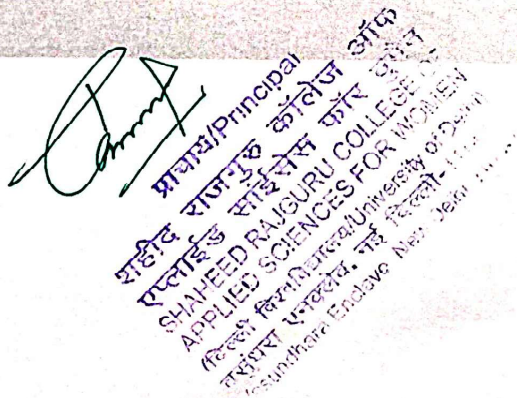 प्राचार्य/Principal
शहीद राजगुरु कॉलेज ऑफ
एप्लाईड साईंसेस फॉर वूमेन
SHAHEED RAJGURU COLLEGE OF
APPLIED SCIENCES FOR WOMEN
(दिल्ली विश्वविद्यालय/University of Delhi)
वसुंधरा एनक्लेव, नई दिल्ली-
Vasundhara Enclave New Delhi